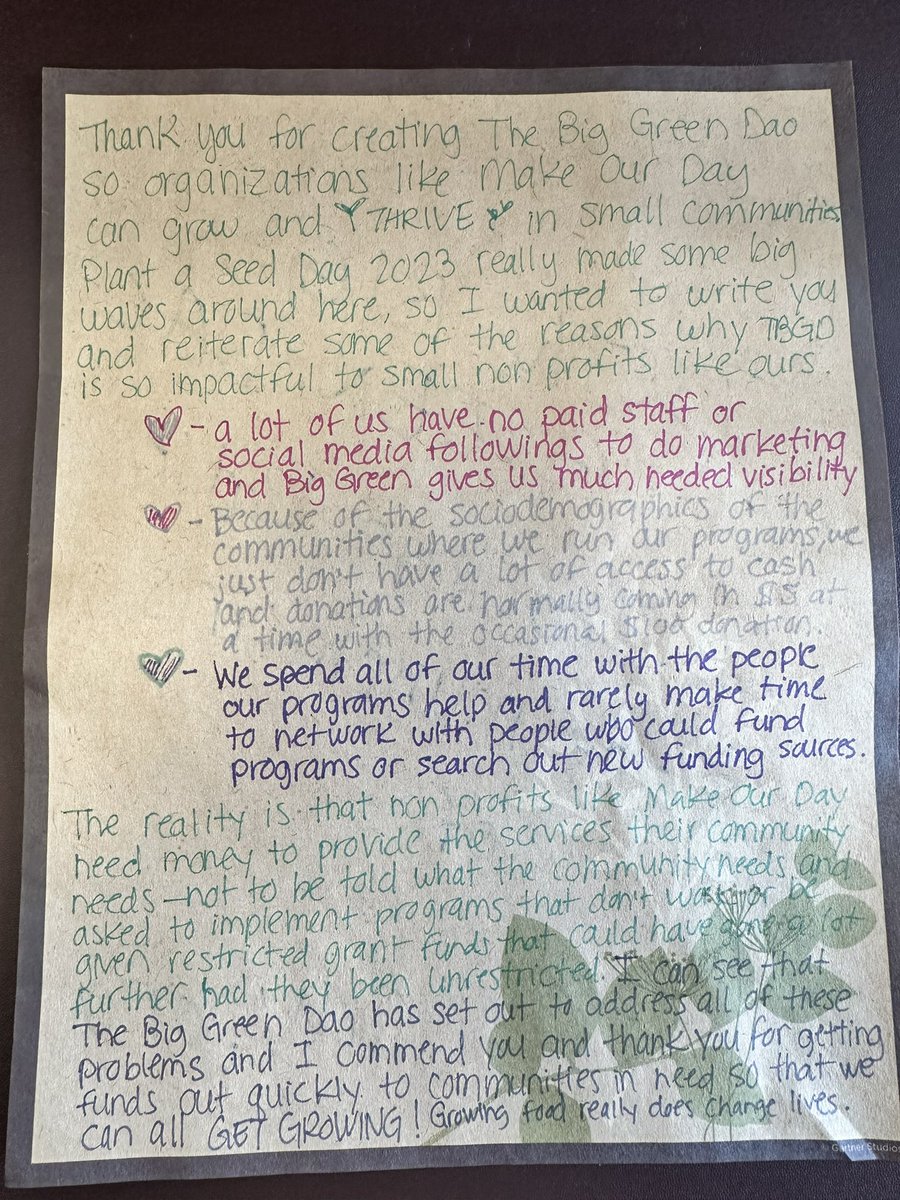 Thank you for creating The Big Green Dao
so organizations like Make Our Day
can grow and THRIVE in small communities
Plant a Seed Day 2023 really made some big
waves around here, so I wanted to write you
and reiterate some of the reasons why TBGD
is so impactful to small non profits like ours.
- a lot of us have no paid staff or
social media followings to do marketing
and Big Green gives us much needed visibility
- Because of the sociodemographics of the
communities where we run our programs, we
just don't have a lot of access to cash
and donations are normally coming in $5 at
a time with the occasional $100 donation.
- We spend all of our time with the people
our programs help and rarely make time
to network with people who could fund
programs or search out new funding sources.
The reality is that non profits like Make Our Day
need money to provide the services their community
needs - not to be told what the community needs and
asked to implement programs that don't work or be
given restricted grant funds that could have gone a lot
further had they been unrestricted. I can see that
The Big Green Dao has set out to address all of these
problems and I commend you and thank you for getting
funds out quickly to communities in need so that we
can all GET GROWING! Growing food really does change lives.
© Gartner Studios